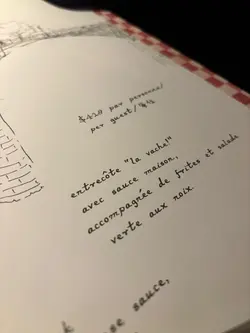 per personne/
per guest/
entrecôte "la vache!"
avec sauce maison,
accompagnée de frites et salade
verte aux noix.
se sauce,